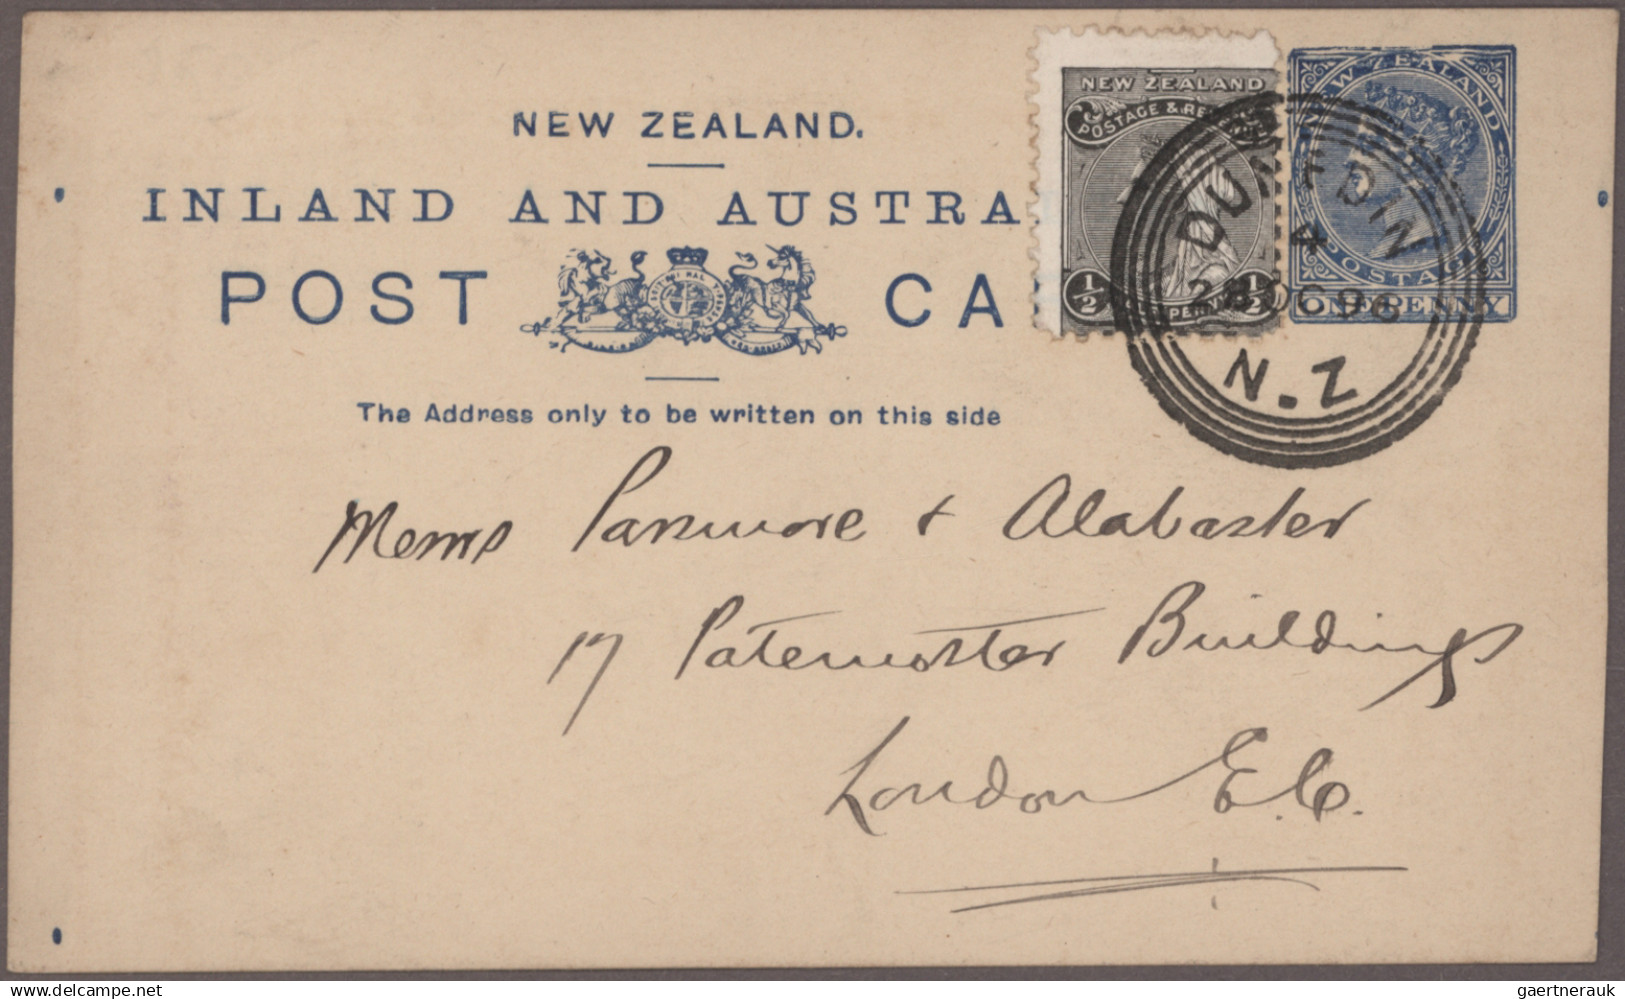 NEW ZEALAND.
INLAND AND AUSTRA
POST CA
The Address only to be written on this side
NEW ZEALAND
POSTAGE & RE
½ PENN ½
NEW ZEALAND
POSTAGE
ONE PENNY
DUNEDIN
4
28 OC 96
N.Z
Messrs Passmore + Alabaster
17 Paternoster Buildings
London E.C.
www.delcampe.net
gaertnerauk